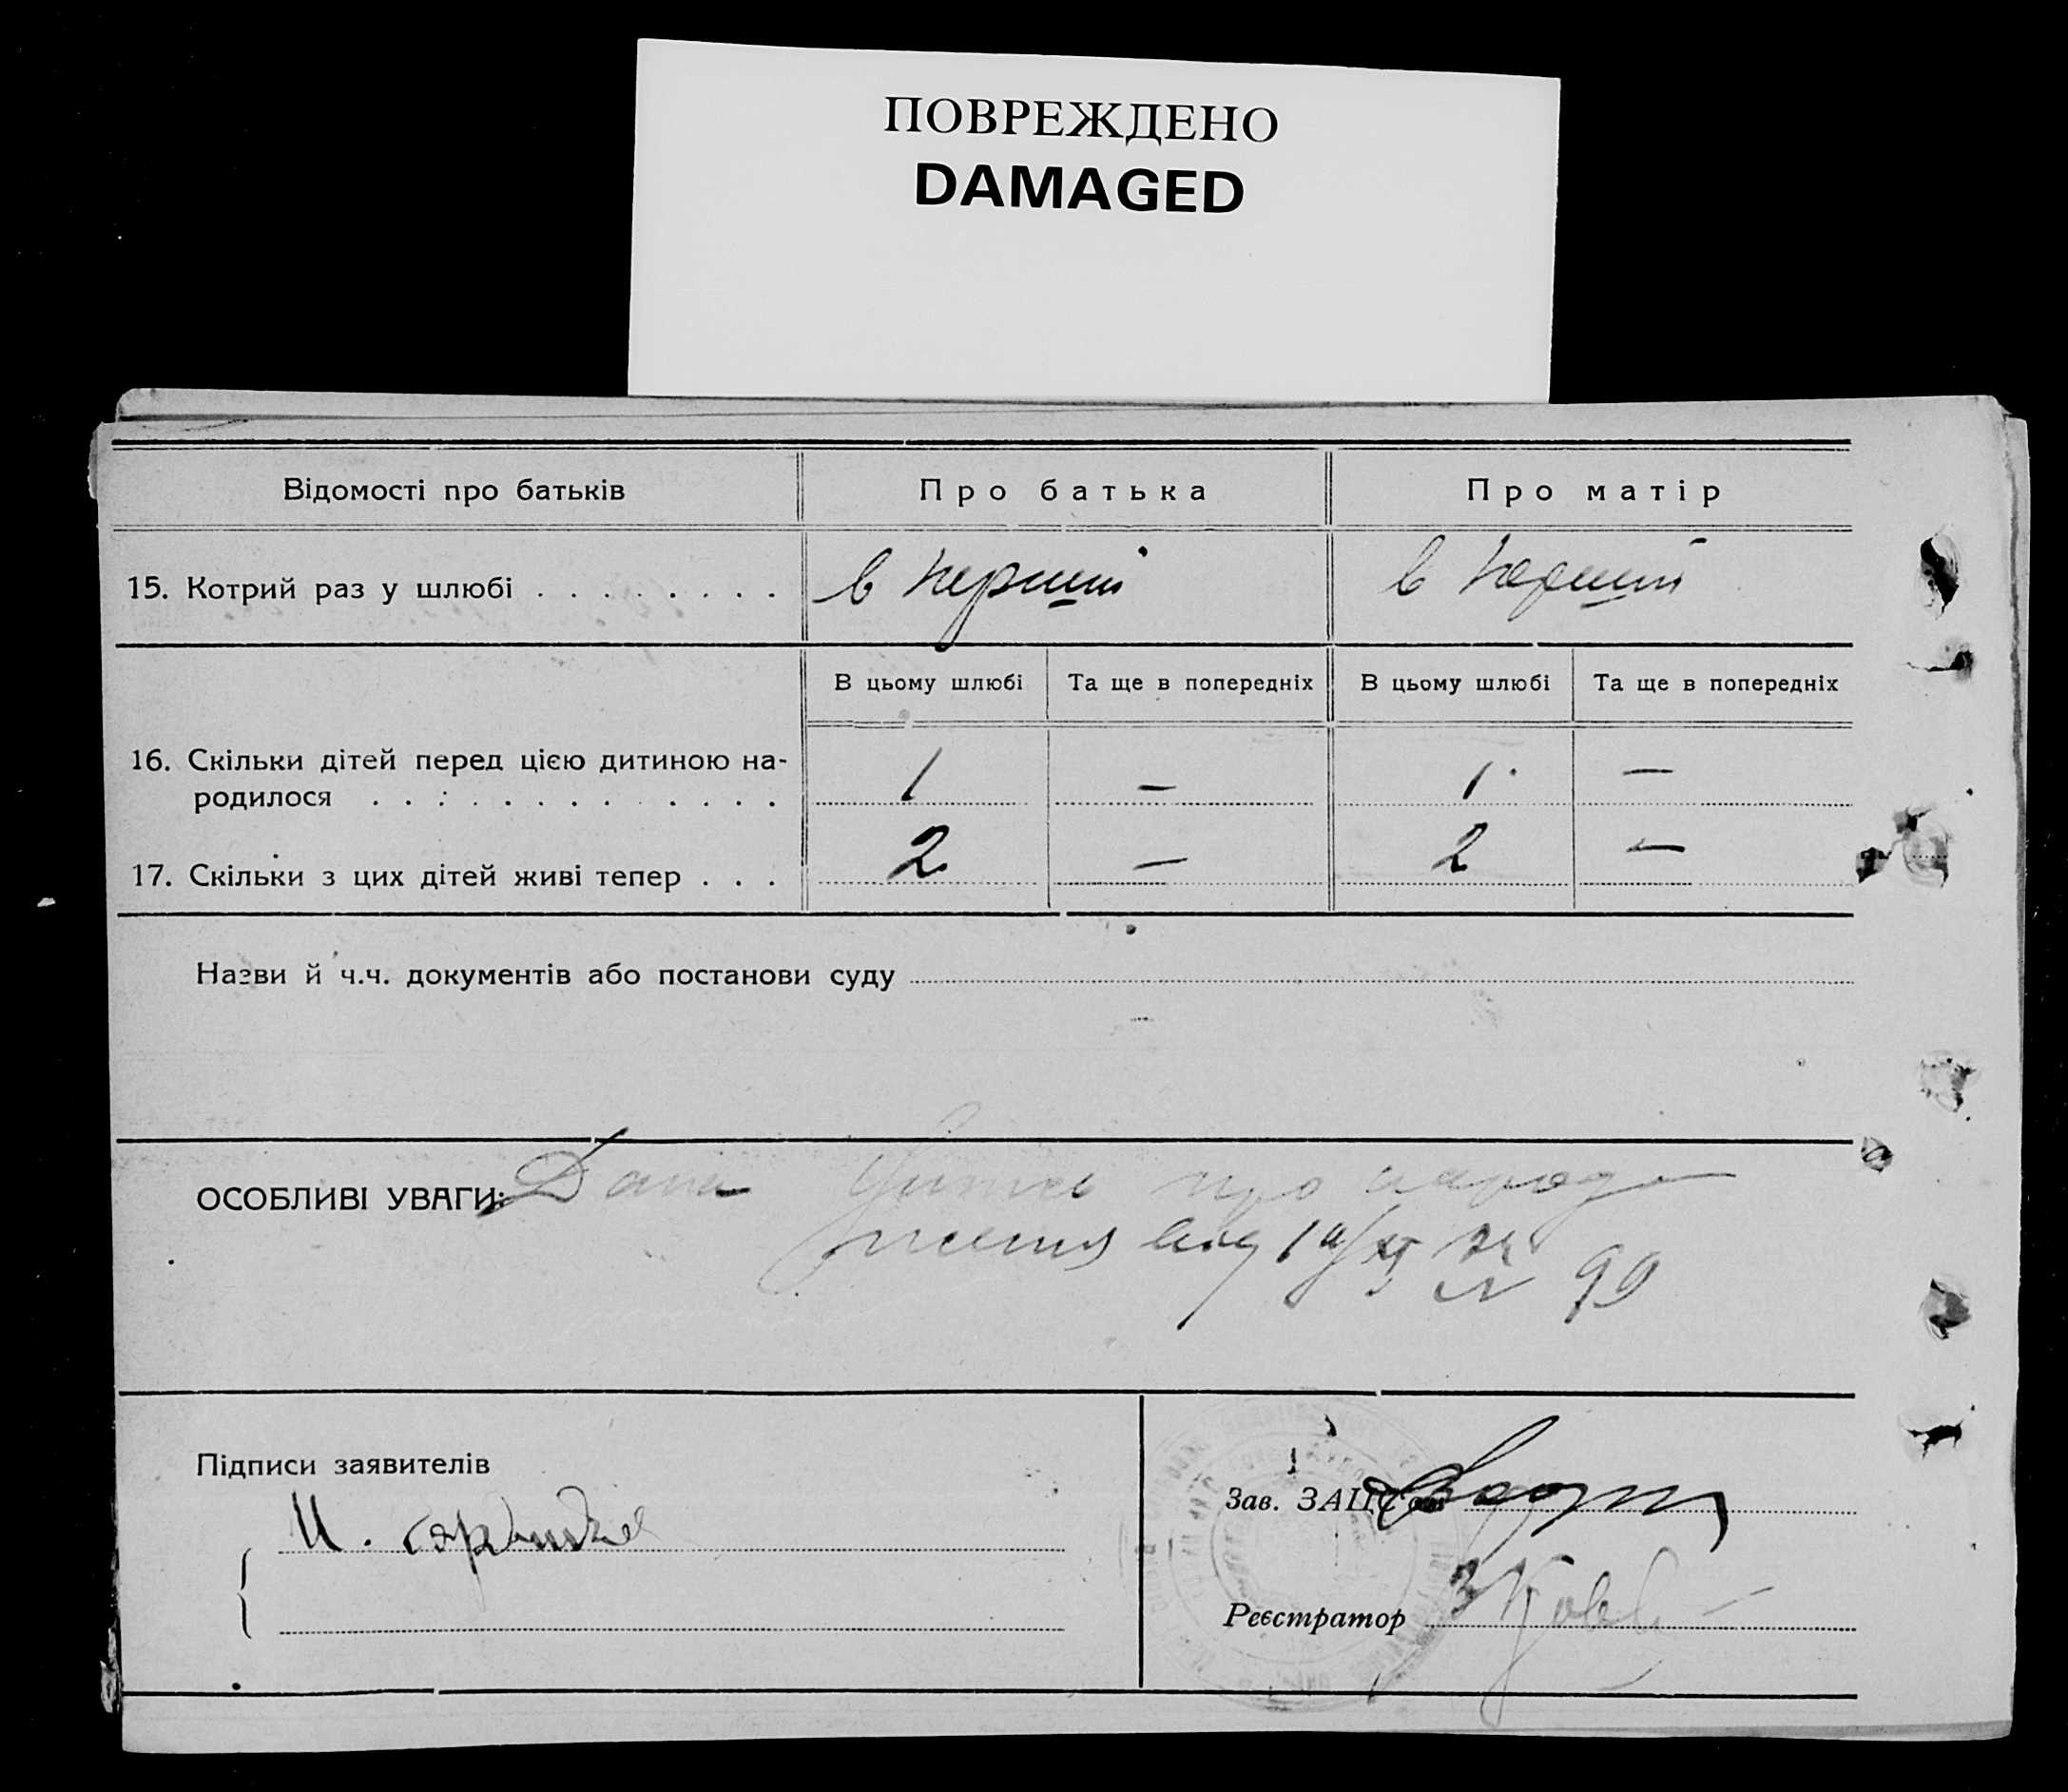 ПОВРЕЖДЕНО
DAMAGED
Відомості про батьків Про батька Про матір
15. Котрий раз у шлюбі . . . . . . . . в перший в перший
В цьому шлюбі Та ще в попередніх В цьому шлюбі Та ще в попередніх
16. Скільки дітей перед цією дитиною на-
родилося . . . . . . . . . . . . . 1 — 1 —
17. Скільки з цих дітей живі тепер . . . 2 — 2 —
Назви й ч.ч. документів або постанови суду
ОСОБЛИВІ УВАГИ: Дана про народ
ження від № 99
Підписи заявителів
И.
Зав. ЗАЦС'ом
Реєстратор